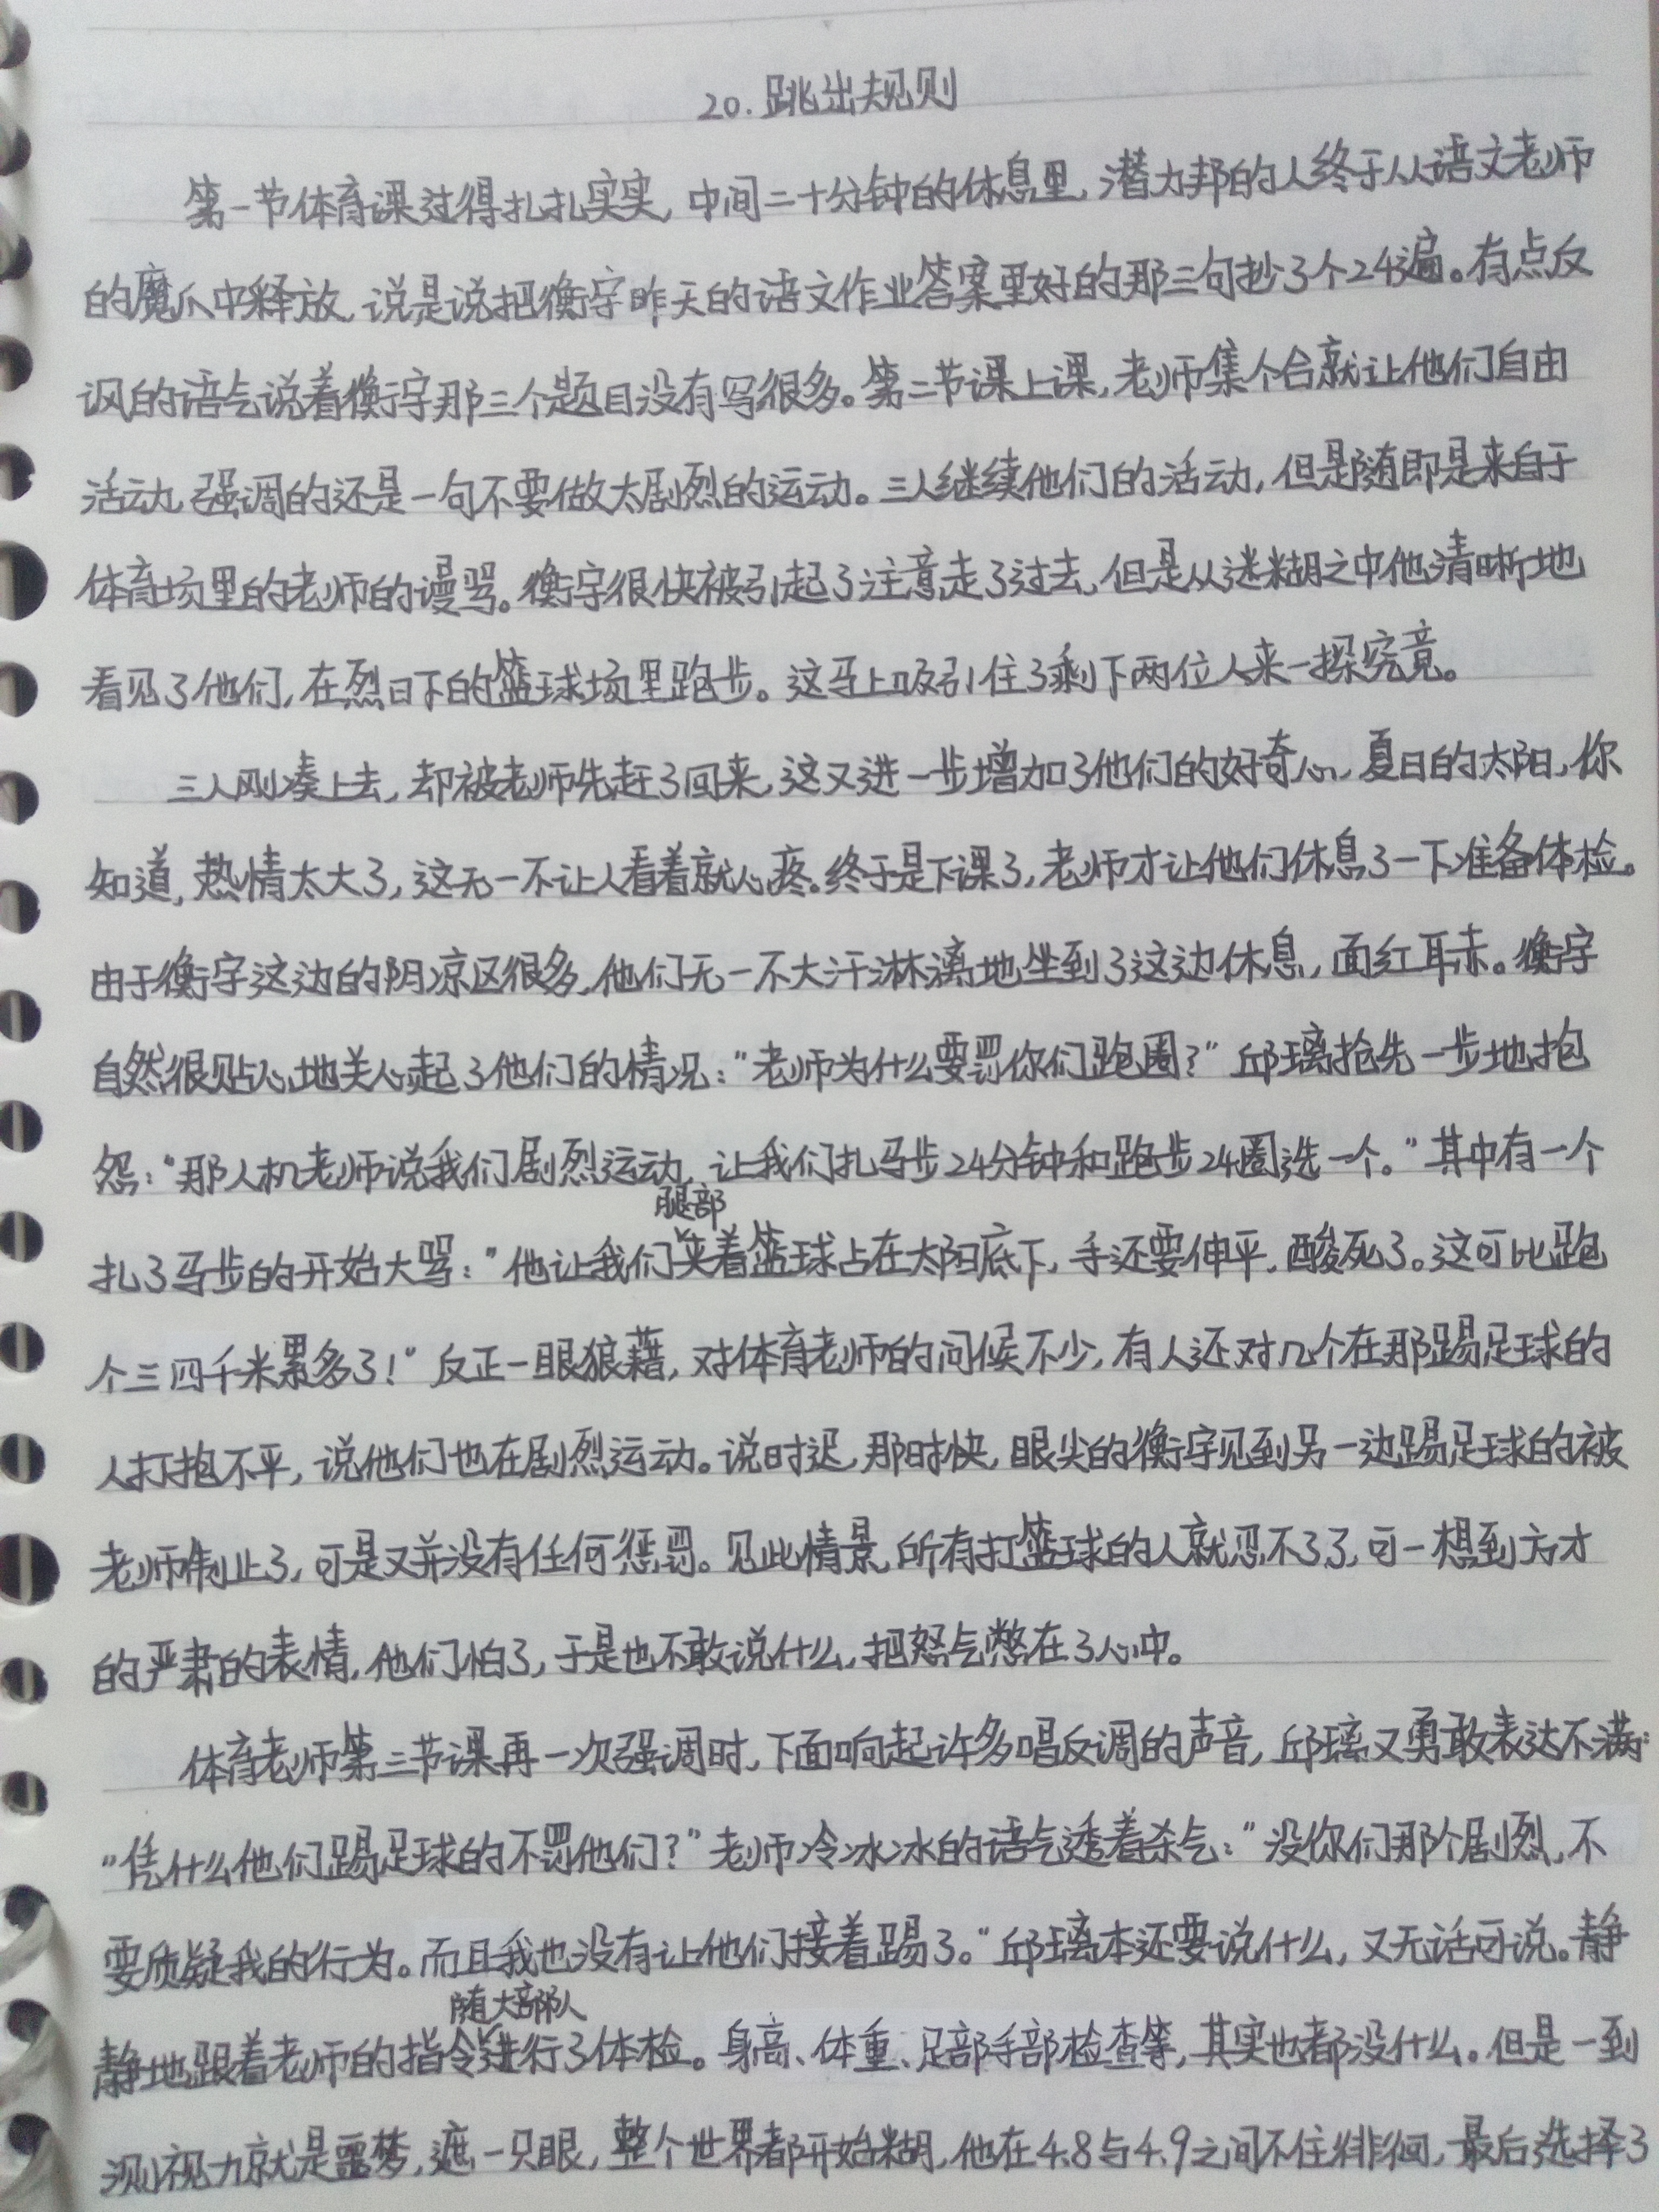 20.跳出规则
第一节体育课过得扎扎实实,中间二十分钟的休息里,潜力邦的人终于从语文老师
的魔爪中释放,说是说把衡宇昨天的语文作业答案里好的那三句抄了个24遍。有点反
讽的语气说着衡宇那三个题目没有写很多。第二节课上课,老师集个合就让他们自由
活动,强调的还是一句不要做太剧烈的运动。三人继续他们的活动,但是随即是来自于
体育场里的老师的谩骂。衡宇很快被引起了注意走了过去,但是从迷糊之中他清晰地
看见了他们,在烈日下的篮球场里跑步。这马上吸引住了剩下两位人来一探究竟。
三人刚凑上去,却被老师先赶了回来,这又进一步增加了他们的好奇心,夏日的太阳,你
知道,热情太大了,这无一不让人看着就心疼。终于是下课了,老师才让他们休息了一下准备体检。
由于衡宇这边的阴凉区很多,他们无一不大汗淋漓地坐到了这边休息,面红耳赤。衡宇
自然很贴心地关心起了他们的情况:“老师为什么要罚你们跑圈?”邱璃抢先一步地抱
怨:“那人机老师说我们剧烈运动,让我们扎马步24分钟和跑步24圈选一个。”其中有一个
腿部
扎了马步的开始大骂:“他让我们夹着篮球占在太阳底下,手还要伸平,酸死了。这可比跑
个三四千米累多了!”反正一眼狼藉,对体育老师的问候不少,有人还对几个在那踢足球的
人打抱不平,说他们也在剧烈运动。说时迟,那时快,眼尖的衡宇见到另一边踢足球的被
老师制止了,可是又并没有任何惩罚。见此情景,所有打篮球的人就忍不了了,可一想到方才
的严肃的表情,他们怕了,于是也不敢说什么,把怒气憋在了心中。
体育老师第三节课再一次强调时,下面响起许多唱反调的声音,邱璃又勇敢表达不满:
“凭什么他们踢足球的不罚他们?”老师冷冰冰的语气透着杀气:“没你们那个剧烈,不
要质疑我的行为。而且我也没有让他们接着踢了。”邱璃本还要说什么,又无话可说。静
随大部队
静地跟着老师的指令进行了体检。身高、体重、足部手部检查等,其实也都没什么。但是一到
测视力就是噩梦,遮一只眼,整个世界都开始糊,他在4.8与4.9之间不住徘徊,最后选择了